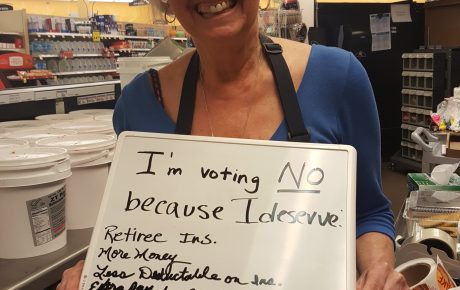 I'm voting NO
because I deserve:
Retiree Ins.
More Money
Less Deductable on Ins.
Extra Pay